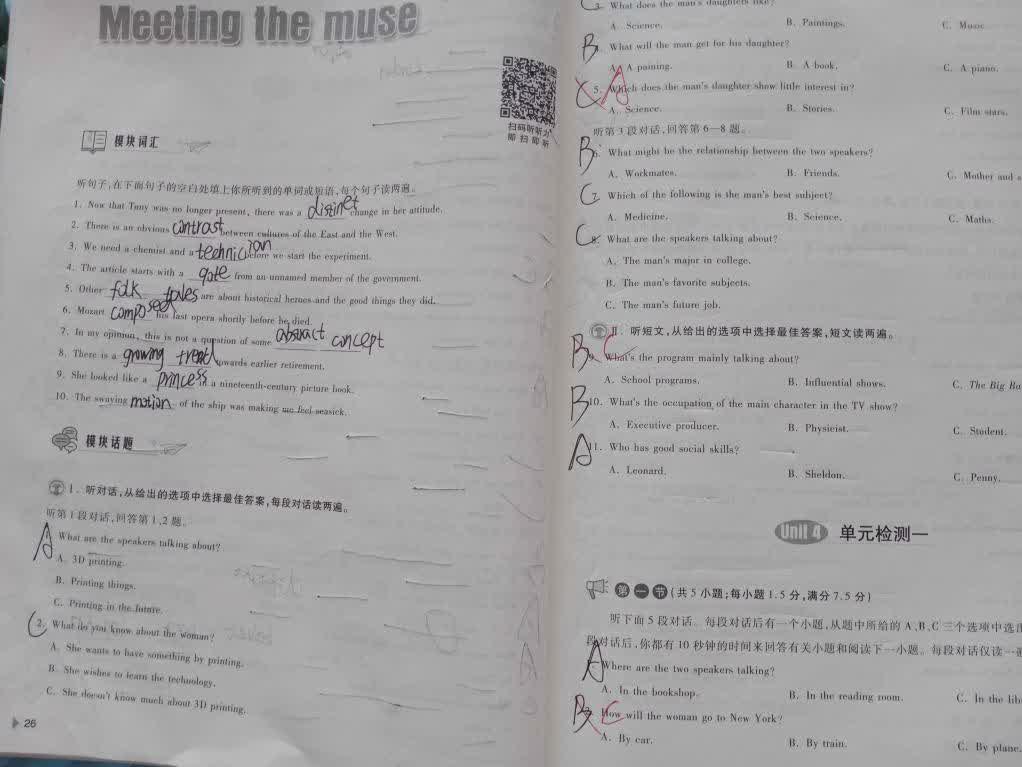 Meeting the muse
扫码听听力
即扫即听
模块词汇
听句子,在下面句子的空白处填上你所听到的单词或短语,每个句子读两遍。
1. Now that Tony was no longer present, there was a distinct change in her attitude.
2. There is an obvious contrast between cultures of the East and the West.
3. We need a chemist and a technician before we start the experiment.
4. The article starts with a qote from an unnamed member of the government.
5. Other folk tales are about historical heroes and the good things they did.
6. Mozart composed his last opera shortly before he died.
7. In my opinion, this is not a question of some abstract concept
8. There is a growing trend towards earlier retirement.
9. She looked like a princess in a nineteenth-century picture book.
10. The swaying motion of the ship was making me feel seasick.
模块话题
Ⅰ. 听对话,从给出的选项中选择最佳答案,每段对话读两遍。
听第1段对话,回答第1、2题。
A
What are the speakers talking about?
A. 3D printing.
B. Printing things.
C. Printing in the future.
C 2. What do you know about the woman?
A. She wants to have something by printing.
B. She wishes to learn the technology.
C. She doesn't know much about 3D printing.
26
C What does the man's daughters like?
A. Science. B. Paintings. C. Music
B What will the man get for his daughter?
A. A paining. B. A book. C. A piano.
C A 5. Which does the man's daughter show little interest in?
A. Science. B. Stories. C. Film stars.
听第3段对话,回答第6—8题。
B What might be the relationship between the two speakers?
A. Workmates. B. Friends. C. Mother and
C Which of the following is the man's best subject?
A. Medicine. B. Science. C. Maths.
C 8. What are the speakers talking about?
A. The man's major in college.
B. The man's favorite subjects.
C. The man's future job.
Ⅱ. 听短文,从给出的选项中选择最佳答案,短文读两遍。
B C 9. What's the program mainly talking about?
A. School programs. B. Influential shows. C. The Big
B 10. What's the occupation of the main character in the TV show?
A. Executive producer. B. Physicist. C. Student.
A 11. Who has good social skills?
A. Leonard. B. Sheldon. C. Penny.
Unit 4 单元检测一
第一节 (共5小题;每小题1.5分,满分7.5分)
听下面5段对话。每段对话后有一个小题,从题中所给的A、B、C三个选项中选
段对话后,你都有10秒钟的时间来回答有关小题和阅读下一小题。每段对话仅读一
A Where are the two speakers talking?
A. In the bookshop. B. In the reading room. C. In the
B C How will the woman go to New York?
A. By car. B. By train. C. By plane.